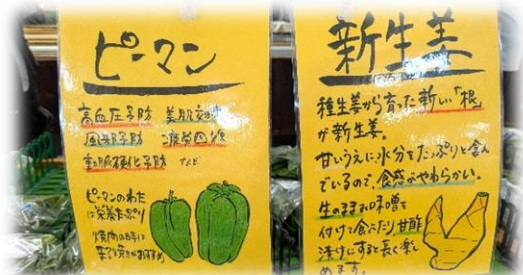 ピーマン
高血圧予防 美肌効果
風邪予防 疲労回復
動脈硬化予防 など
ピーマンのわた
は栄養たっぷり
焼肉の時は
新生姜
種生姜から育った新しい「根」
が新生姜。
甘いうえに水分をたっぷりと含ん
でいるので、食感がやわらかい。
生のままみ味噌を
付けて食べたり甘酢
漬けにすると長く楽し
めます。